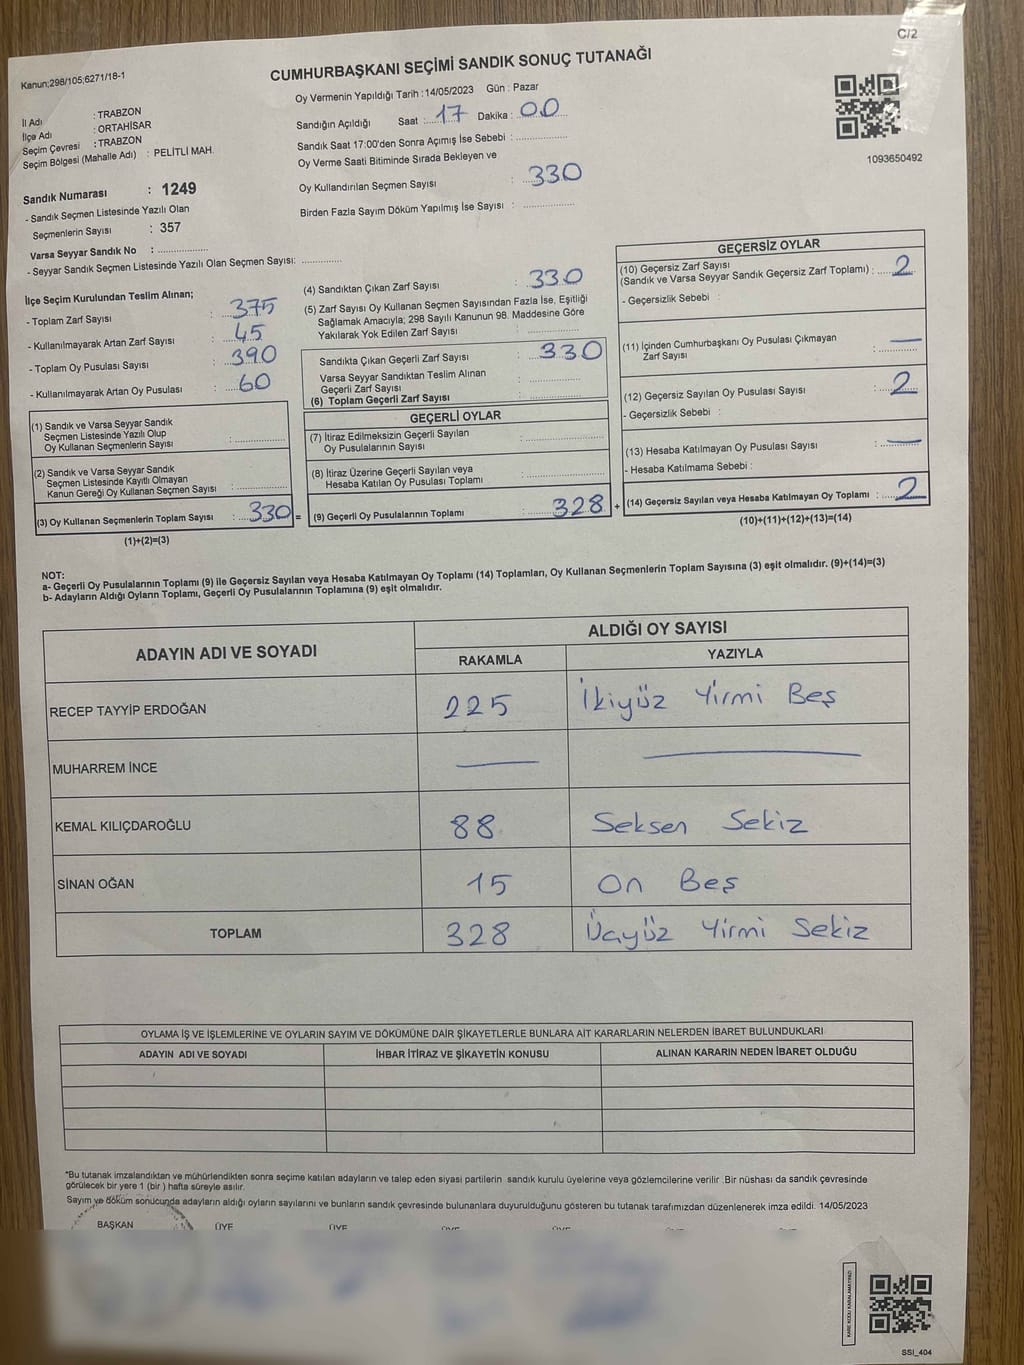 C/2
Kanun;298/105;6271/18-1
CUMHURBAŞKANI SEÇİMİ SANDIK SONUÇ TUTANAĞI
Oy Vermenin Yapıldığı Tarih : 14/05/2023 Gün : Pazar
İl Adı : TRABZON
İlçe Adı : ORTAHİSAR
Seçim Çevresi : TRABZON
Seçim Bölgesi (Mahalle Adı) : PELİTLİ MAH.
Sandık Numarası : 1249
- Sandık Seçmen Listesinde Yazılı Olan
Seçmenlerin Sayısı : 357
Varsa Seyyar Sandık No : ..................
- Seyyar Sandık Seçmen Listesinde Yazılı Olan Seçmen Sayısı: ..............
Sandığın Açıldığı Saat : 17 Dakika : 00
Sandık Saat 17:00'den Sonra Açımış İse Sebebi : ..................
Oy Verme Saati Bitiminde Sırada Bekleyen ve
Oy Kullandırılan Seçmen Sayısı : 330
Birden Fazla Sayım Döküm Yapılmış İse Sayısı : ..................
1093650492
İlçe Seçim Kurulundan Teslim Alınan;
- Toplam Zarf Sayısı : 375
- Kullanılmayarak Artan Zarf Sayısı : 45
- Toplam Oy Pusulası Sayısı : 390
- Kullanılmayarak Artan Oy Pusulası : 60
(1) Sandık ve Varsa Seyyar Sandık
Seçmen Listesinde Yazılı Olup
Oy Kullanan Seçmenlerin Sayısı : ..................
(2) Sandık ve Varsa Seyyar Sandık
Seçmen Listesinde Kayıtlı Olmayan
Kanun Gereği Oy Kullanan Seçmen Sayısı : ..................
(3) Oy Kullanan Seçmenlerin Toplam Sayısı : 330 =
(1)+(2)=(3)
(4) Sandıktan Çıkan Zarf Sayısı : 330
(5) Zarf Sayısı Oy Kullanan Seçmen Sayısından Fazla İse, Eşitliği
Sağlamak Amacıyla; 298 Sayılı Kanunun 98. Maddesine Göre
Yakılarak Yok Edilen Zarf Sayısı : ..................
Sandıkta Çıkan Geçerli Zarf Sayısı : 330
Varsa Seyyar Sandıktan Teslim Alınan
Geçerli Zarf Sayısı : ..................
(6) Toplam Geçerli Zarf Sayısı : ..................
GEÇERLİ OYLAR
(7) İtiraz Edilmeksizin Geçerli Sayılan
Oy Pusulalarının Sayısı : ..................
(8) İtiraz Üzerine Geçerli Sayılan veya
Hesaba Katılan Oy Pusulası Toplamı : ..................
(9) Geçerli Oy Pusulalarının Toplamı : 328 +
GEÇERSİZ OYLAR
(10) Geçersiz Zarf Sayısı
(Sandık ve Varsa Seyyar Sandık Geçersiz Zarf Toplamı) : 2
- Geçersizlik Sebebi :
(11) İçinden Cumhurbaşkanı Oy Pusulası Çıkmayan
Zarf Sayısı : —
(12) Geçersiz Sayılan Oy Pusulası Sayısı : 2
- Geçersizlik Sebebi :
(13) Hesaba Katılmayan Oy Pusulası Sayısı : —
- Hesaba Katılmama Sebebi :
(14) Geçersiz Sayılan veya Hesaba Katılmayan Oy Toplamı : 2
(10)+(11)+(12)+(13)=(14)
NOT:
a- Geçerli Oy Pusulalarının Toplamı (9) ile Geçersiz Sayılan veya Hesaba Katılmayan Oy Toplamı (14) Toplamları, Oy Kullanan Seçmenlerin Toplam Sayısına (3) eşit olmalıdır. (9)+(14)=(3)
b- Adayların Aldığı Oyların Toplamı, Geçerli Oy Pusulalarının Toplamına (9) eşit olmalıdır.
ADAYIN ADI VE SOYADI
ALDIĞI OY SAYISI
RAKAMLA YAZIYLA
RECEP TAYYİP ERDOĞAN 225 İkiyüz Yirmi Beş
MUHARREM İNCE — —
KEMAL KILIÇDAROĞLU 88 Seksen Sekiz
SİNAN OĞAN 15 On Beş
TOPLAM 328 Üçyüz Yirmi Sekiz
OYLAMA İŞ VE İŞLEMLERİNE VE OYLARIN SAYIM VE DÖKÜMÜNE DAİR ŞİKAYETLERLE BUNLARA AİT KARARLARIN NELERDEN İBARET BULUNDUKLARI
ADAYIN ADI VE SOYADI İHBAR İTİRAZ VE ŞİKAYETİN KONUSU ALINAN KARARIN NEDEN İBARET OLDUĞU
*Bu tutanak imzalandıktan ve mühürlendikten sonra seçime katılan adayların ve talep eden siyasi partilerin sandık kurulu üyelerine veya gözlemcilerine verilir .Bir nüshası da sandık çevresinde
görülecek bir yere 1 (bir ) hafta süreyle asılır.
Sayım ve döküm sonucunda adayların aldığı oyların sayılarını ve bunların sandık çevresinde bulunanlara duyurulduğunu gösteren bu tutanak tarafımızdan düzenlenerek imza edildi. 14/05/2023
BAŞKAN ÜYE ÜYE ÜYE ÜYE
KARE KODU KARALAMAYINIZ!
SSİ_404